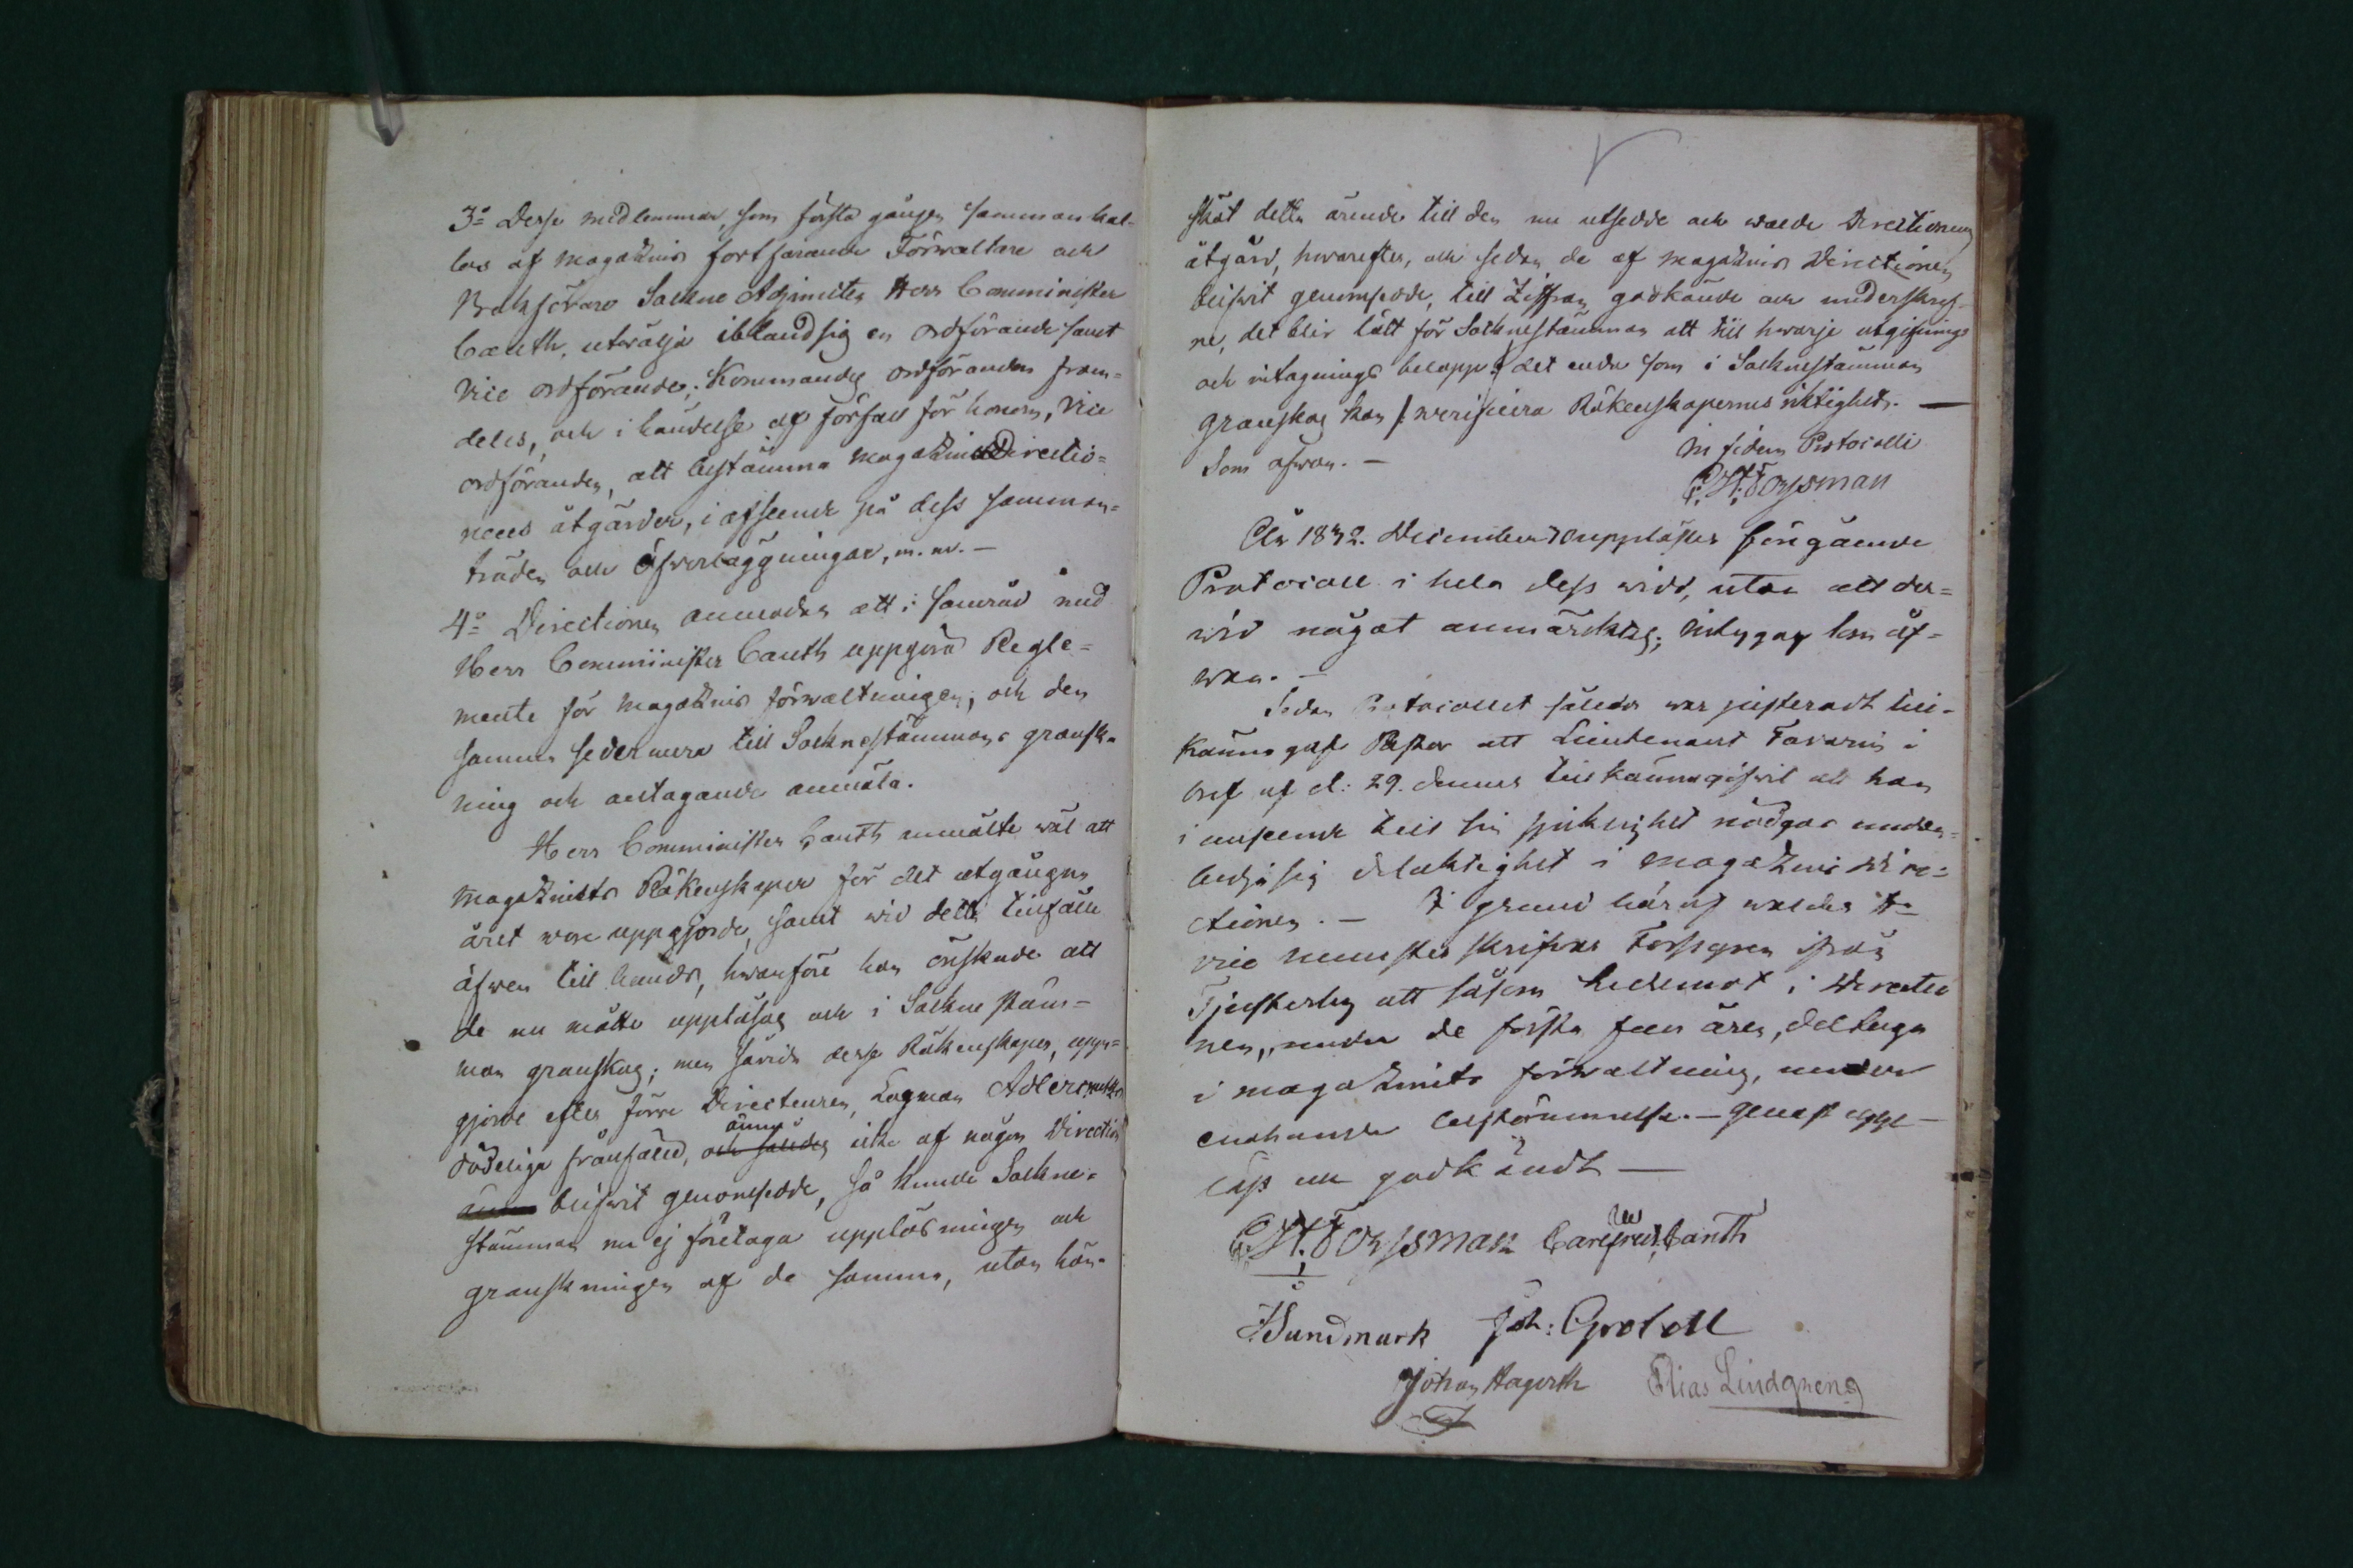 3:o Desse medlemmar, som första gången sammankal-
las af magazins fortfarande Förwaltare och
Bokförare Sockne Adjuncten Herr Comminister
Canth, utwälja ibland sig en ordförande samt
Vice ordförande; Kommandes ordföranden fram-
deles, och i händelse af förfall för honom, Vice
ordföranden, att bestämma magazins Directio-
nens åtgärder, i afseende på dess samman-
träden och öfverläggningar, m. m. —
4:o Directionen anmodas att i samråd med
Herr Comminister Canth uppgöra Regle-
mente för magazins förwaltningen, och den
samma sedermera till Socknestämmans gransk-
ning och antagande anmäla.
Herr Comminister Canth anmälte wäl att
magazinets Räkenskaper för det utgångna
året woro uppgjorde, samt wid detta tillfälle
äfwen till hands, hwarföre han önskade att
de nu måtte uppläsas och i Sockne stäm-
man granskas; men såwida desse Räkenskaper, upp-
gjorde efter förre Directeuren, Lagman
dödeliga frånfälle, och således ännu icke af någon Direction
blifwit genomsedde, så kunde Sockne-
stämman nu ej företaga uppläsningen och
granskningen af de samma, utan hän-
sköt detta ärende till den nu utsedde och walde Directionens
åtgärd, hwarefter, och sedan de af magazins Directionen
blifwit genomsedde, till Ziffran godkände och underskref-
ne, det blir lätt för Socknestämman att till hwarje utgifnings
och intagnings belopp /: det enda som i Socknestämman
granskas kan :/ werificera Räkenskapernes riktighet. —
Som ofwan. — In fidem Protocolli
C: H: Forssman
År 1832. December upplästes föregående
Protocoll i hela dess widd, utan att der-
wid något anmärktes; intygas som of-
wan. —
Sedan Protocollet således war justeradt till-
känna gaf Pastor att Lieutenant i
bref af d: 29. dennes tillkännagifwit att han
i anseende till sin sjuklighet nödgas undan-
bedja sig delaktighet i magazins Dire-
ctionen. — I grund häraf waldes H:r
vice Forssgren ifrån
att såsom Ledamot i Directio
nen, under de första fem åren, deltaga
i magazinets förwaltning, under
enahanda bestämmelse. — Genast upp-
läst och godkändt —
C: H: Forssman Carl Canth
Sundmark Joh: Grotell
Johan Hagerth Elias Lindqren